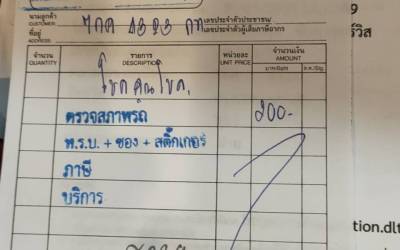 9
นามลูกค้า
CUSTOMER
เลขประจำตัวประชาชน/
ร์วิส
ที่อยู่
ADDRESS
เลขประจำตัวผู้เสียภาษีอากร
จำนวน
QUANTITY
รายการ
DESCRIPTION
หน่วยละ
UNIT PRICE
จำนวนเงิน
AMOUNT
บาท/Baht
ส.ต./Stg.
ตรวจสภาพรถ
200-
พ.ร.บ. + ซอง + สติ๊กเกอร์
ภาษี
บริการ
tion.dlt